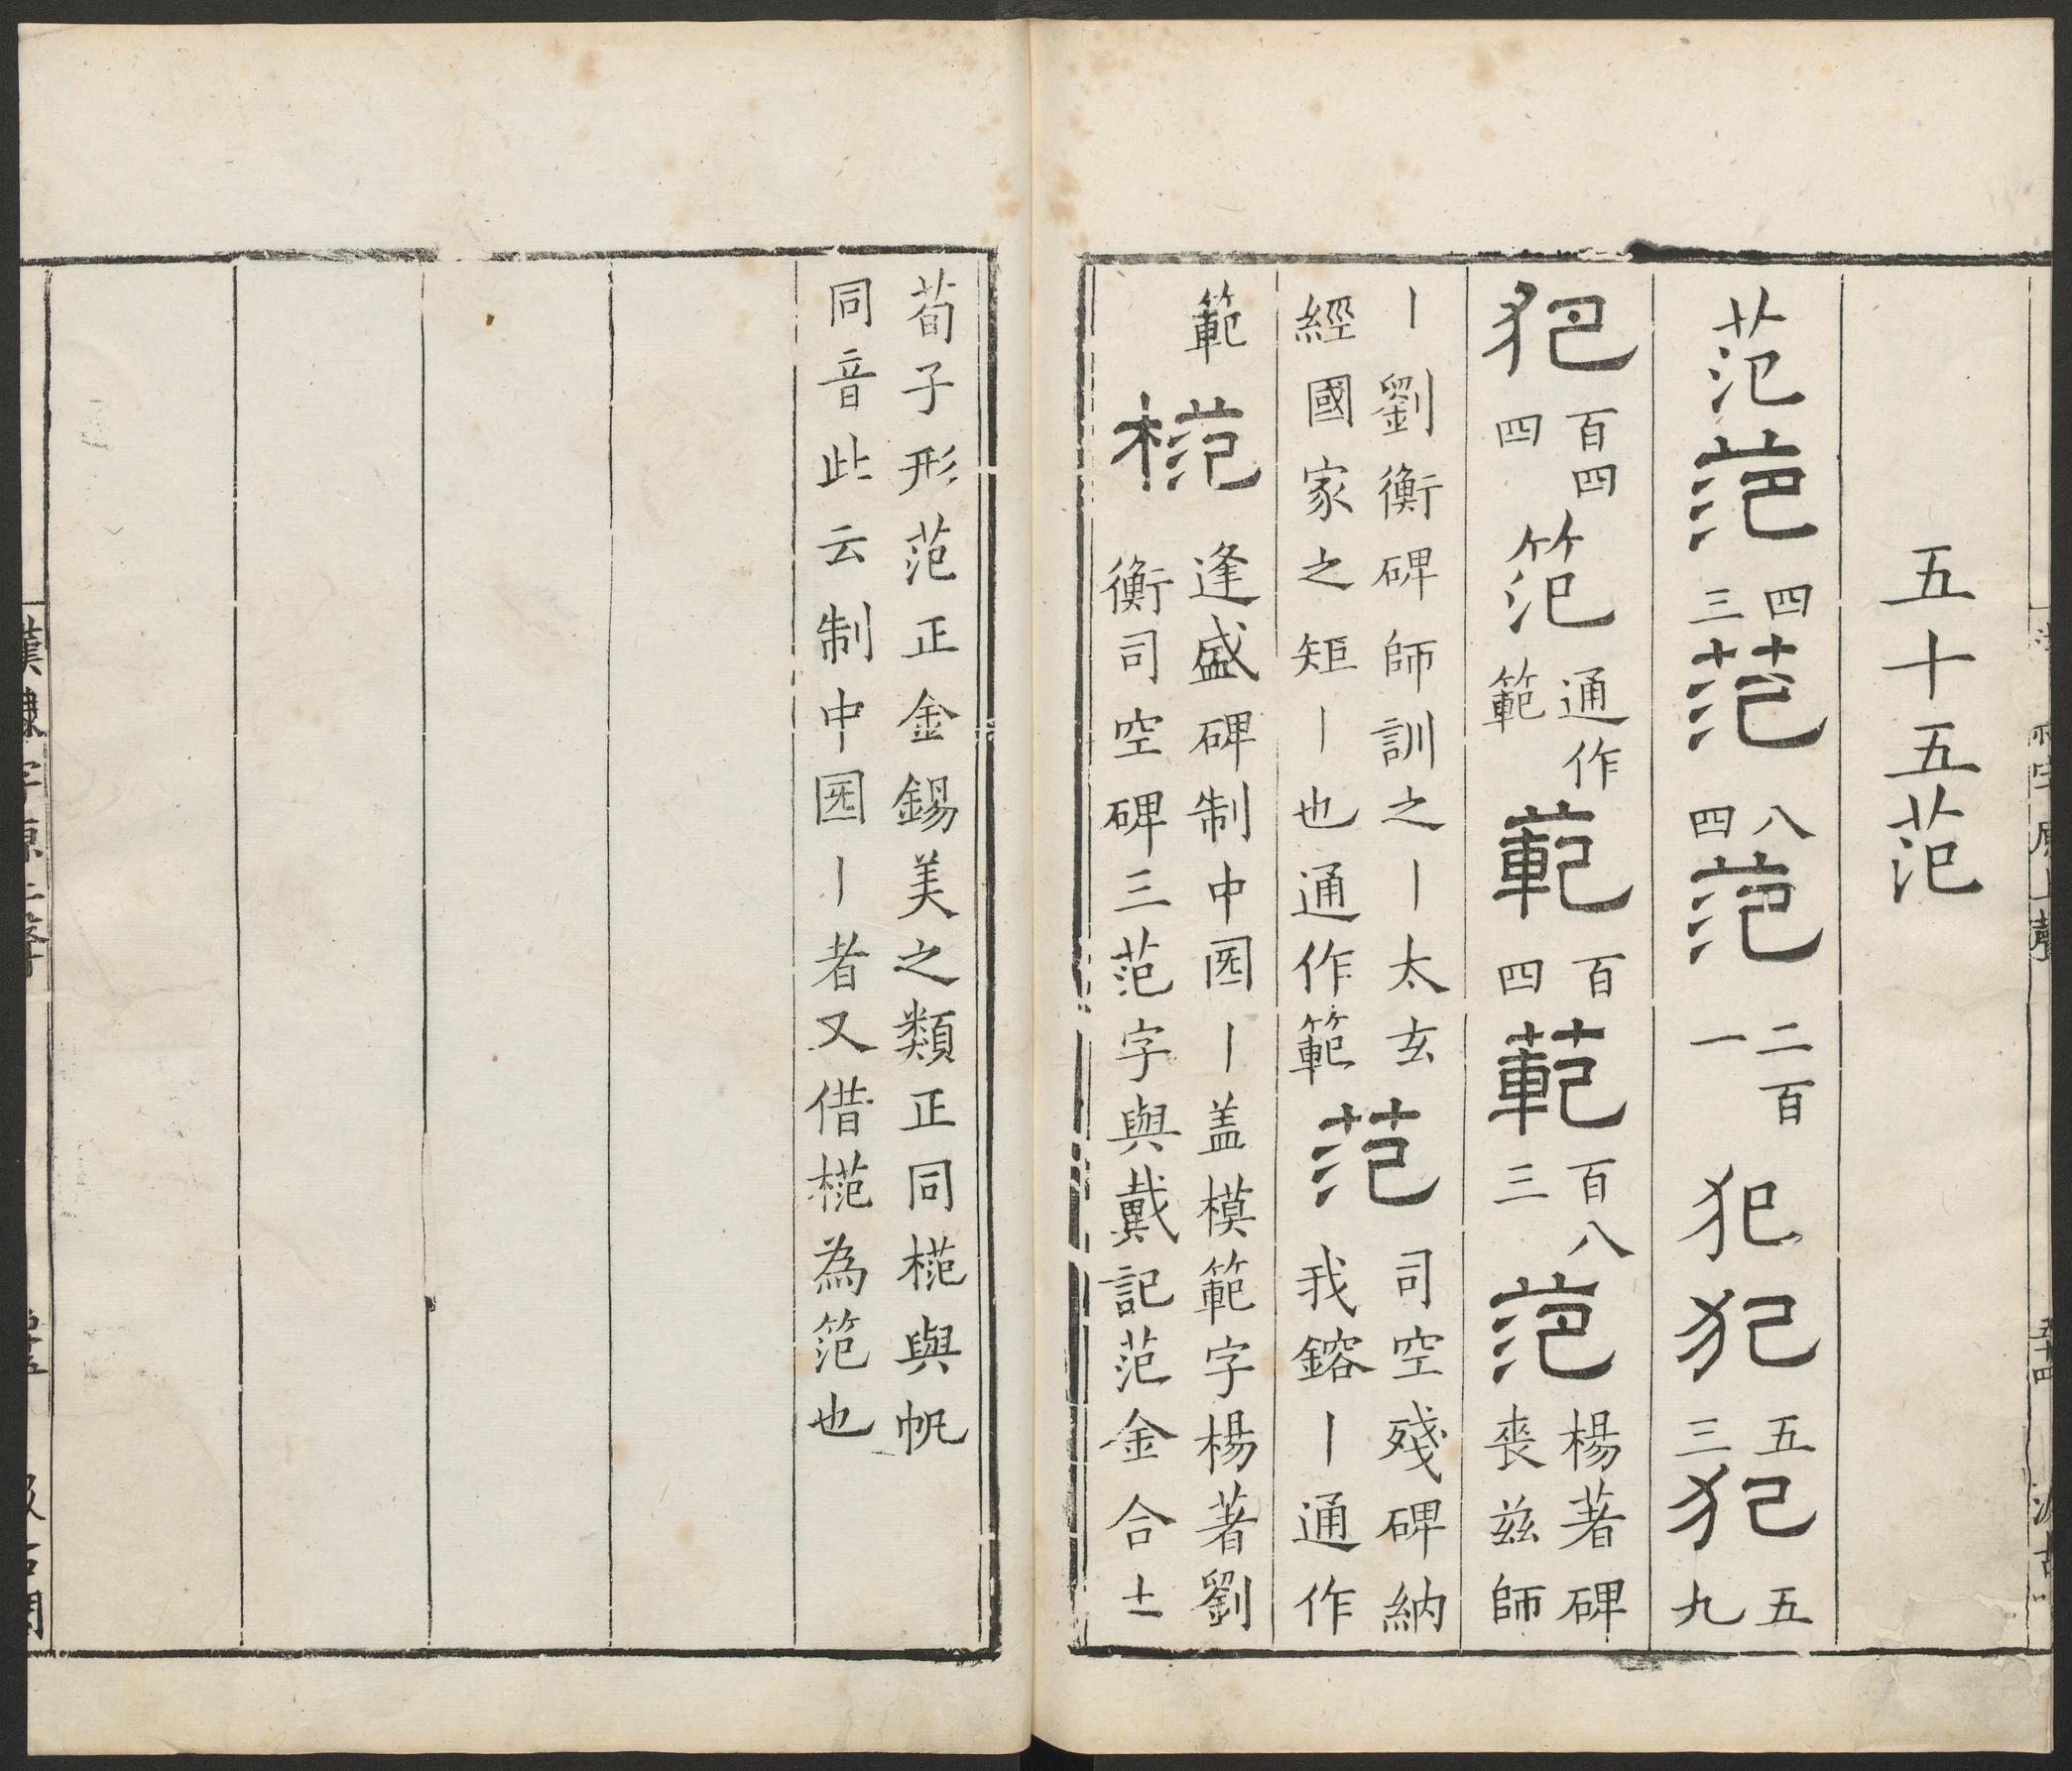 五十五范
范 范 四三 范 八四 范 二百一 犯 犯 五三 犯 五九
犯 百四四 笵 通作範 範 百四 範 百八三 范 楊著碑喪茲師
丨劉衡碑師訓之丨太玄經國家之矩丨也通作範 范 司空殘碑納我鎔丨通作
範 㮄 逢盛碑制中囦丨盖模範字楊著劉衡司空碑三范字與戴記范金合土
荀子形范正金錫美之類正同㮄與帆同音此云制中囦丨者又借㮄為笵也
漢隸字源上聲